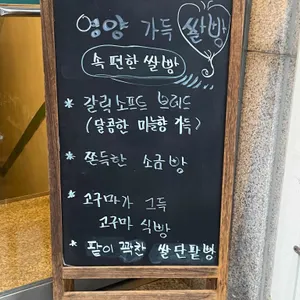 영양 가득 쌀빵
속 편한 쌀빵
* 갈릭소프트 브레드
(달콤한 마늘향 가득)
* 쫀득한 소금빵
* 고구마가 그득
고구마 식빵
* 팥이 꽉찬 쌀단팥빵